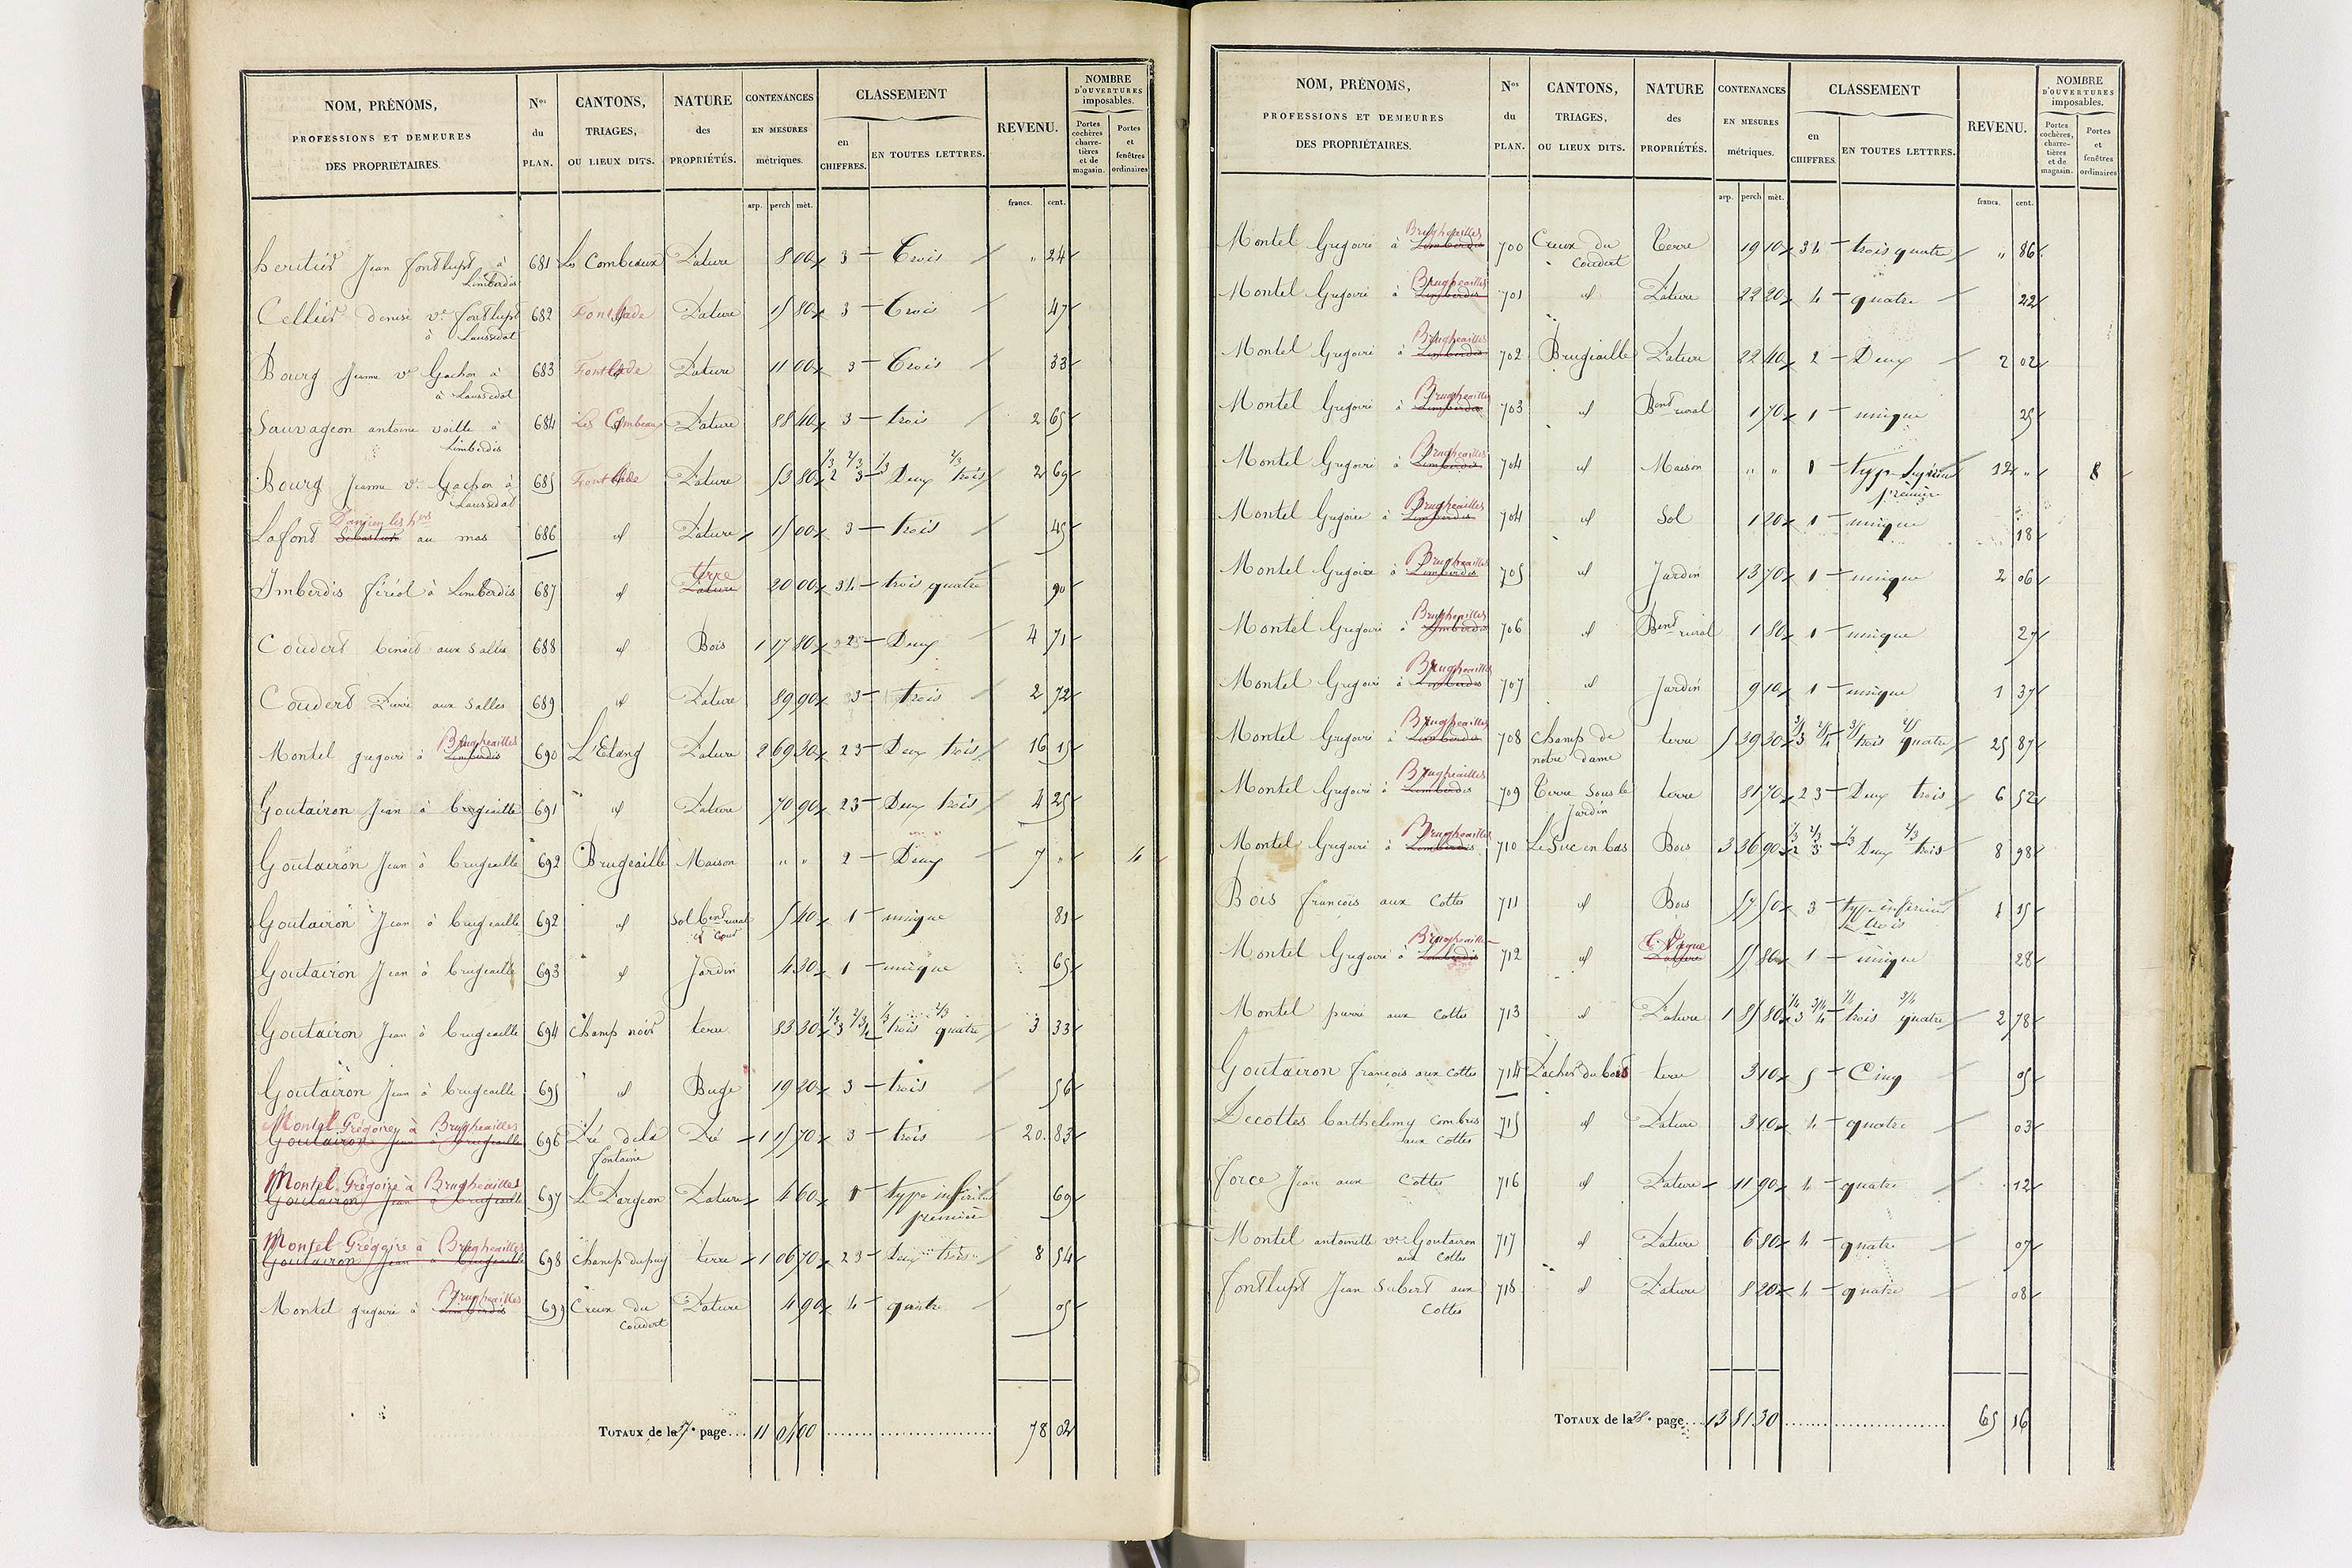 NOM, PRÉNOMS, PROFESSIONS ET DEMEURES DES PROPRIÉTAIRES. Nos du PLAN. CANTONS, TRIAGES, OU LIEUX DITS. NATURE des PROPRIÉTÉS. CONTENANCES EN MESURES métriques. CLASSEMENT en CHIFFRES. EN TOUTES LETTRES. REVENU. NOMBRE D'OUVERTURES imposables. Portes cochères, charretières et de magasin. Portes et fenêtres ordinaires
arp. perch mèt. francs. cent.
heritiers Jean fontlupt à 681 Les Combeaux Pature 8 00 3 Trois " 24
Limberdis
Cellier denise ve fontlupt 682 Fontfade Pature 15 80 3 Trois 47
à Laussedat
Bourg Jeanne ve Gachon à 683 Pature 11 00 3 Trois 33
à Laussedat
Sauvageon antoine voille à 684 Les Combeaux Pature 88 40 3 trois 2 65
Limberdis
Bourg Jeanne ve Gachon à 685 Pature 53 80 1/3 2 2/3 3 1/3 Deux 2/3 trois 2 69
Laussedat
Damien les hers
Lafont Sébastien au mas 686 id Pature 15 00 3 trois 45
terre
Imberdis fériol à Limberdis 687 id Pature 20 00 3 4 trois quatre 90
Coudert benoit aux Salles 688 id Bois 1 17 80 2 Deux 4 71
Coudert Pierre aux Salles 689 id Pature 89 90 3 trois 2 72
Brugheailles
Montel gregoire à Limberdis 690 L'Etang Pature 2 69 30 2 3 Deux trois 16 15
Goutairon Jean à brugeaille 691 id Pature 70 90 2 3 Deux trois 4 25
Goutairon Jean à brugeaille 692 Brugeaille Maison " " 2 Deux 7 " 4
Goutairon Jean à brugeaille 692 id Sol bent rural 5 40 1 unique 81
et cour
Goutairon Jean à brugeaille 693 id Jardin 4 30 1 unique 65
Goutairon Jean à brugeaille 694 champ noir terre 83 30 1/3 3 2/3 4 1/3 trois 2/3 quatre 3 33
Goutairon Jean à brugeaille 695 id Buge 19 20 3 trois 56
Montel Grégoire à Brugheailles
Goutairon Jean à brugeaille 696 Pré de la 1 15 70 3 trois 20 83
fontaine
Montel Grégoire à Brugheailles
Goutairon Jean à brugeaille 697 Pature 4 60 1 type inférieur 69
première
Montel Grégoire à Brugheailles
Goutairon Jean à brugeaille 698 Champ dupuy terre 1 06 70 2 3 Deux trois 8 54
Brugheailles
Montel gregoire à Limberdis 699 Creux du Pature 4 90 4 quatre 05
coudert
TOTAUX de la 37e page 11 01 00 78 02
NOM, PRÉNOMS, PROFESSIONS ET DEMEURES DES PROPRIÉTAIRES. Nos du PLAN. CANTONS, TRIAGES, OU LIEUX DITS. NATURE des PROPRIÉTÉS. CONTENANCES EN MESURES métriques. CLASSEMENT en CHIFFRES. EN TOUTES LETTRES. REVENU. NOMBRE D'OUVERTURES imposables. Portes cochères, charretières et de magasin. Portes et fenêtres ordinaires
arp. perch mèt. francs. cent.
Brugheailles
Montel Gregoire à Limberdis 700 Creux du Terre 19 10 3 4 trois quatre " 86
coudert
Brugheailles
Montel Gregoire à Limberdis 701 id Pature 22 20 4 quatre 22
Brugheailles
Montel Gregoire à Limberdis 702 Brugiaille Pature 22 40 2 Deux 2 02
Brugheailles
Montel Gregoire à Limberdis 703 id Bent rural 1 70 1 unique 25
Brugheailles
Montel Gregoire à Limberdis 704 id Maison " " 1 12 " 8
première
Brugheailles
Montel Gregoire à Limberdis 704 id Sol 1 20 1 unique 18
Brugheailles
Montel Gregoire à Limberdis 705 id Jardin 13 70 1 unique 2 06
Brugheailles
Montel Gregoire à Limberdis 706 id Bent rural 1 80 1 unique 27
Brugheailles
Montel Gregoire à Limberdis 707 id Jardin 9 10 1 unique 1 37
Brugheailles
Montel Gregoire à Limberdis 708 champ de terre 5 39 30 3/5 3 2/5 4 3/5 trois 2/5 quatre 25 87
notre dame
Brugheailles
Montel Gregoire à Limberdis 709 Terre Sous le terre 81 70 2 3 Deux trois 6 52
Jardin
Brugheailles
Montel Gregoire à Limberdis 710 Le Suc en bas Bois 3 36 90 1/3 2 2/3 3 1/3 Deux 2/3 trois 8 98
Bois francois aux Cottes 711 id Bois 57 50 3 type inférieur 1 15
trois
Brugheailles
Montel Gregoire à Limberdis 712 id Pature 55 80 1 unique 28
Montel pierre aux Cottes 713 id Pature 1 85 80 1/4 3 3/4 4 1/4 trois 3/4 quatre 2 78
Goutairon francois aux Cottes 714 terre 3 10 5 Cinq 05
Decottes barthelemy combris 715 id Pature 3 10 4 quatre 03
aux Cottes
force Jean aux Cottes 716 id Pature 11 90 4 quatre 12
Montel antoinette ve Goutairon 717 id Pature 6 80 4 quatre 07
aux Cottes
fontlupt Jean Subert aux 718 id Pature 8 20 4 quatre 08
Cottes
TOTAUX de la 38e page 13 81 30 65 16